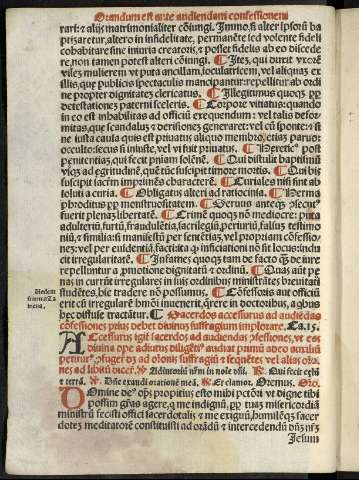 Orandum est ante audiendam confessionem
rari: ⁊ alijs matrimonialiter cōiungi. Immo, si alter ipsorū ba
ptizaretur, altero in infidelitate, permanēte sed volente fideli
cohabitare sine iniuria creatoris, ⁊ posset fidelis ab eo discede
re, non tamen potest alteri cōiungi. ¶ Itez, qui duxit vxorē
vilez mulierem vt puta ancillam, ioculatricem, vel aliquaz ex
illis, que publicis spectaculis mancipantur: repellitur ab ordi
ne propter dignitates clericatus. ¶ Illegitimus quoqz ꝓp
detestationez paterni sceleris. ¶ Corpore vitiatus: quando
in eo est inhabilitas ad officiū exequendum: vel talis defor-
mitas, que scandaluz ⁊ derisionez generaret: vel cū sponte: ⁊ si
ne iusta causa quis est priuatus aliquo membro, etiaz paruo:
occulto: secus si iniuste, vel vi fuit priuatus. ¶ Hereticꝰ post
pęnitentiam, qui fecit pniam solēnē. ¶ Qui distulit baptismū
vsqz ad egritudinē, quē tūc suscipit timore mortis. ¶ Qui bis
suscipit sacrm imprimēs characterē. ¶ Curiales nisi sint ab
soluti a curia. ¶ Obligatus alteri ad ratiocinia. ¶ Herma
phroditus ꝓp monstruositatem. ¶ Seruus anteqz ꝯsecutꝰ
fuerit plenaz libertatē. ¶ Crimē quoqz nō mediocre: puta
adulteriū, furtū, fraudulētia, sacrilegiū, periuriū, falsuz testimo
niū, ⁊ similia: si manifestū per sententiaz, vel propriam cōfessio-
nez: vel per euidentiā facti, ita ꝙ inficiationi nō sit locus: indu
cit irregularitatē. ¶ Infames quoqz tam de facto ꝗ̄ de iure
repelluntur a promotione dignitatū ⁊ ordinū. ¶ Quas aūt pe
nas incurrūt irregulares in suis ordinibus ministrātes breuitati
studētes, hic tradere nō possumus. ¶ Cōfessoris aut officiū
erit cū irregularē hm̄oi inuenerit, querere in doctoribus, a qbus
hec diffuse tractātur. ¶ Sacerdos accessurus ad audiēdas
cōfessiones prius debet diuinuz suffragium implorare. Ca. 15.
ACcessurus igit̄ sacerdos ad audiendas ꝯfessiones, vt eas
diuina ope adiutus diligētiꝰ audiat primū adeo auxiliū
petiturꝰ, ꝯfuget ps ad oīonis suffragiū ⁊ sequētes vel alias orio
nes ad libitū dicet. ℣. Adiutoriū nrm̄ in noīe dn̄i. ℟. Qui fecit celū
⁊ terrā. ℣. Dn̄e exaudi orationē meā. ℟. Et clamor. Oremus. Oro.
DOmine deꝰ ops̄ propitius esto mihi pctōri vt digne tibi
possum grās agere, q me indignū, ꝓp tuaz misericordiā
ministrū fecisti officij sacerdotalis, ⁊ me exiguū, humilēqz sacer
dotez mediatorē constituisti ad orādū ⁊ intercedendū dn̄m nr̄i
Jesum